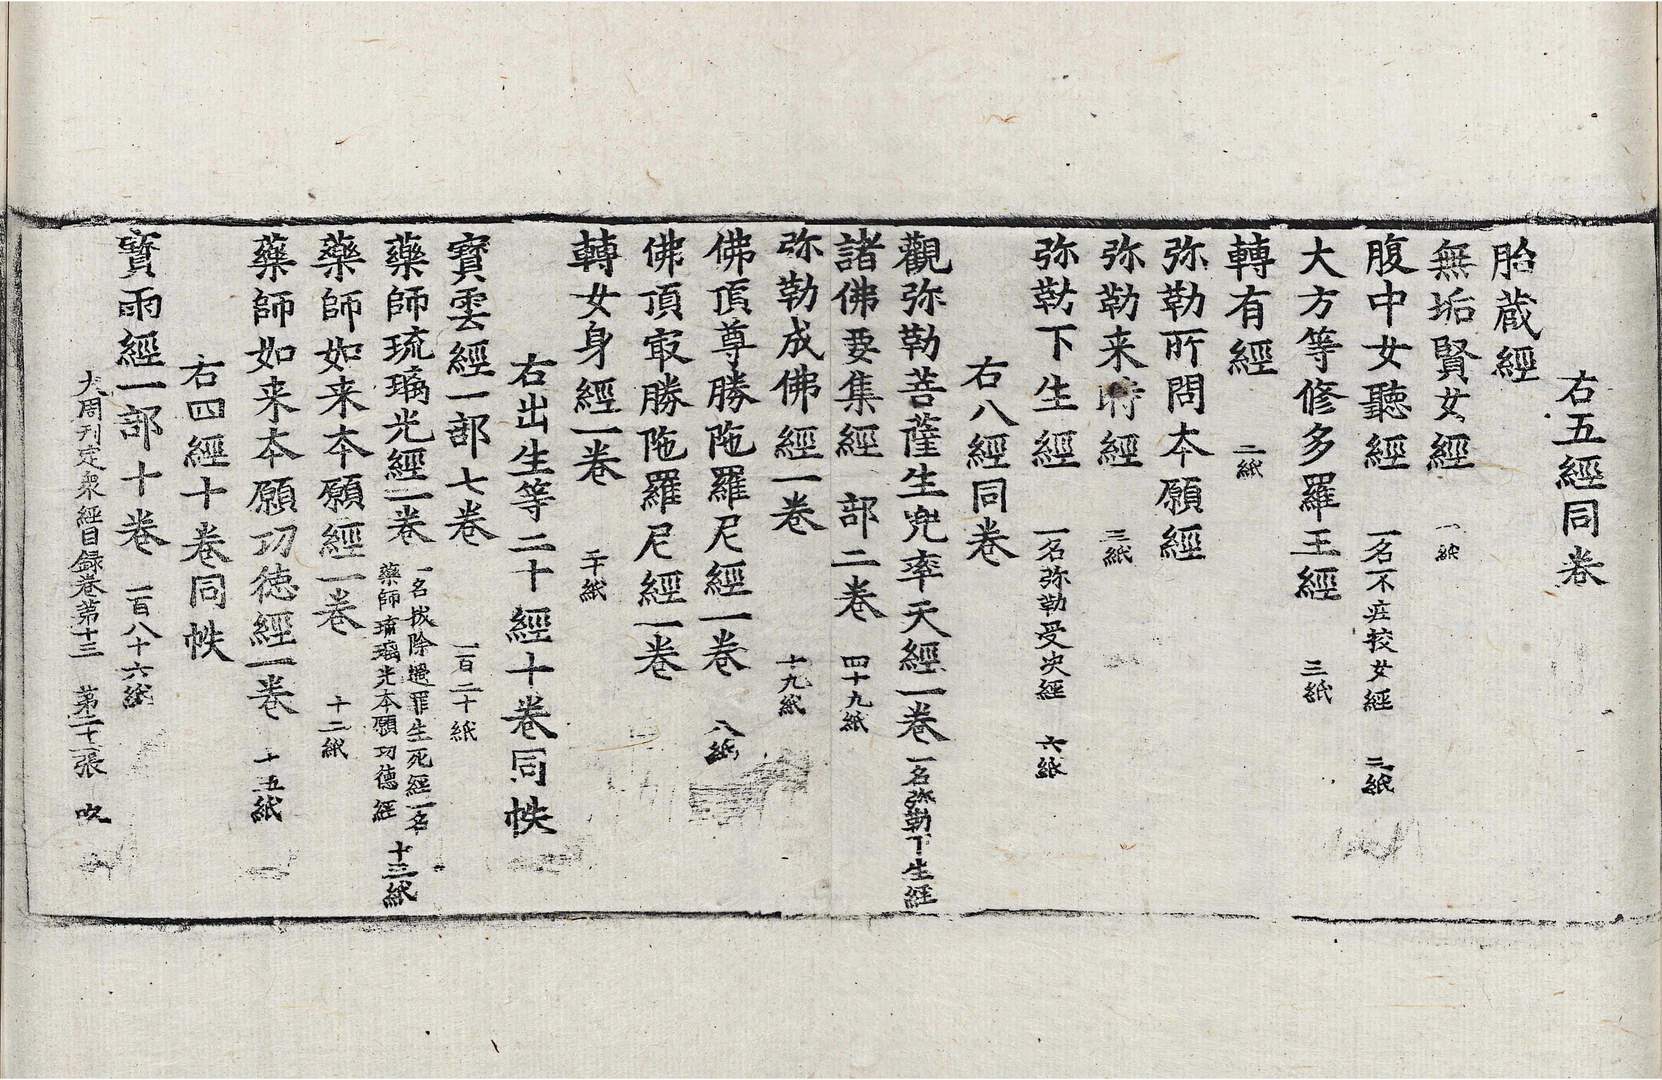 右五經同卷
胎蔵經
無垢賢女經 一紙
腹中女聽經 一名不庄挍女經 三紙
大方等修多羅王經 三紙
轉有經 二紙
弥勒所問本願經
弥勒来時經 三紙
弥勒下生經 一名弥勒受决經 六紙
右八經同卷
觀弥勒菩薩生兜率天經一卷 一名弥勒下生經
諸佛要集經 部二卷 四十九紙
弥勒成佛經一卷 十九紙
佛頂尊勝陁羅尼經一卷 八紙
佛頂冣勝陁羅尼經一卷
轉女身經一卷 二十紙
右出生等二十經十卷同帙
寳雲經一部七卷 一百二十紙
藥師琉璃光經一卷 一名拔除過罪生死經一名
藥師琉璃光本願功德經 十三紙
藥師如来本願經一卷 十二紙
藥師如来本願功德經一卷 十五紙
右四經十卷同帙
寳雨經一部十卷 一百八十六紙
大周刊定衆經目録卷第十三 第二十張